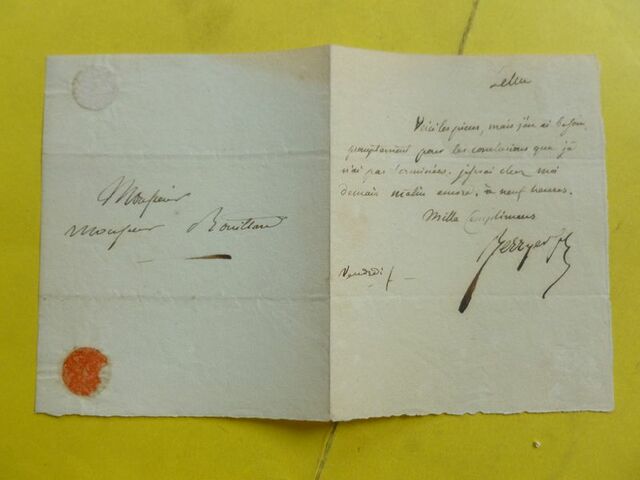 Monsieur
Monsieur
Voici les pièces, mais j'en ai besoin
promptement pour les conclusions que je
n'ai pas terminées. chez moi
demain matin encore, à neuf heures.
Mille Complimens
Berryer fils
Vendredi